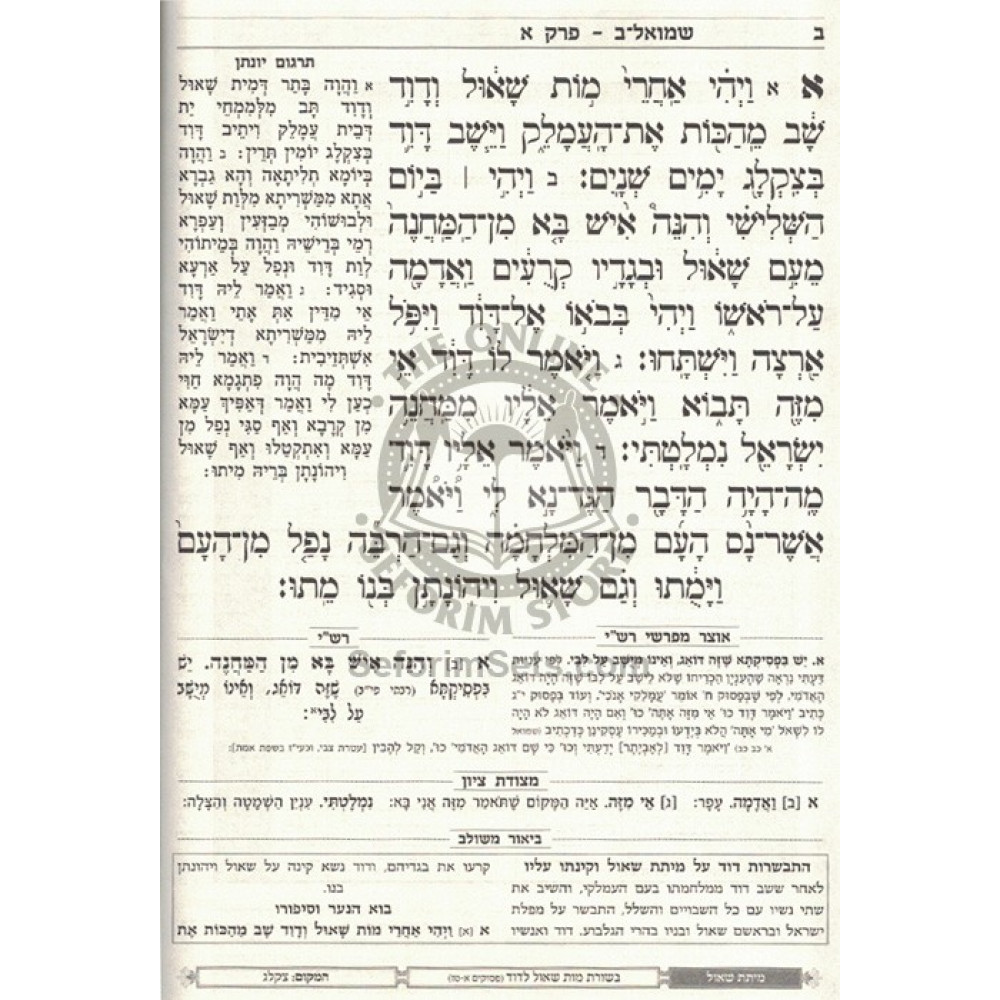 ב
שמואל־ב - פרק א
א א וַיְהִ֗י אַֽחֲרֵי֙ מ֣וֹת שָׁא֔וּל וְדָוִ֣ד
שָׁ֔ב מֵֽהַכּ֖וֹת אֶת־הָֽעֲמָלֵ֑ק וַיֵּ֧שֶׁב דָּוִ֛ד
בְּצִֽקְלָ֖ג יָמִ֥ים שְׁנָֽיִם׃ ב וַיְהִ֣י | בַּיּ֣וֹם
הַשְּׁלִישִׁ֗י וְהִנֵּה֩ אִ֨ישׁ בָּ֤א מִן־הַֽמַּחֲנֶה֙
מֵעִ֣ם שָׁא֔וּל וּבְגָדָ֣יו קְרֻעִ֔ים וַֽאֲדָמָ֖ה
עַל־רֹאשׁ֑וֹ וַיְהִי֙ בְּבֹא֣וֹ אֶל־דָּוִ֔ד וַיִּפֹּ֥ל
אַ֖רְצָה וַיִּשְׁתָּֽחוּ׃ ג וַיֹּ֤אמֶר לוֹ֙ דָּוִ֔ד אֵ֥י
מִזֶּ֖ה תָּב֑וֹא וַיֹּ֣אמֶר אֵלָ֔יו מִמַּחֲנֵ֥ה
יִשְׂרָאֵ֖ל נִמְלָֽטְתִּי׃ ד וַיֹּ֨אמֶר אֵלָ֥יו דָּוִ֛ד
מֶֽה־הָיָ֥ה הַדָּבָ֖ר הַגֶּד־נָ֣א לִ֑י וַ֠יֹּאמֶר
אֲשֶׁר־נָ֨ס הָעָ֜ם מִן־הַמִּלְחָמָ֗ה וְגַם־הַרְבֵּ֞ה נָפַ֤ל מִן־הָעָם֙
וַיָּמֻ֔תוּ וְגַ֗ם שָׁא֛וּל וִיהוֹנָתָ֥ן בְּנ֖וֹ מֵֽתוּ׃
תרגום יונתן
א וַהֲוָה בָּתַר דְּמִית שָׁאוּל
וְדָוִד תָּב מִלְּמִמְחֵי יַת
דְּבֵית עֲמָלֵק וִיתֵיב דָּוִד
בְּצִקְלָג יוֹמִין תְּרֵין׃ ב וַהֲוָה
בְּיוֹמָא תְלִיתָאָה וְהָא גַבְרָא
אֲתָא מִמַּשְׁרִיתָא מִלְּוַת שָׁאוּל
וּלְבוּשׁוֹהִי מְבַזְּעִין וְעַפְרָא
רְמֵי בְּרֵישֵׁיהּ וַהֲוָה בְּמֵיתוֹהִי
לְוַת דָּוִד וּנְפַל עַל אַרְעָא
וּסְגִיד׃ ג וַאֲמַר לֵיהּ דָּוִד
אֵי מִדֵּין אַתְּ אָתֵי וַאֲמַר
לֵיהּ מִמַּשְׁרִיתָא דְיִשְׂרָאֵל
אִשְׁתֵּזֵיבִית׃ ד וַאֲמַר לֵיהּ
דָּוִד מָה הֲוָה פִתְגָמָא חַוִּי
כְעַן לִי וַאֲמַר דְּאַפֵּיךְ עַמָּא
מִן קְרָבָא וְאַף סַגִּי נְפַל מִן
עַמָּא וְאִתְקְטָלוּ וְאַף שָׁאוּל
וִיהוֹנָתָן בְּרֵיהּ מִיתוּ׃
רש"י
א [ב] וְהִנֵּה אִישׁ בָּא מִן הַמַּחֲנֶה. יֵשׁ
בִּפְסִיקְתָּא (רבתי פי"ב) שֶׁזֶּה דּוֹאֵג, וְאֵינוֹ מְיֻשָּׁב
עַל לִבִּי־א׃
אוצר מפרשי רש"י
א. יֵשׁ בִּפְסִיקְתָּא שֶׁזֶּה דּוֹאֵג, וְאֵינוֹ מְיֻשָּׁב עַל לִבִּי. לְפִי עֲנִיּוּת
דַּעְתִּי נִרְאֶה שֶׁהָעִנְיָן הִכְרִיחוֹ שֶׁלֹּא לְיַשֵּׁב עַל לִבּוֹ שֶׁזֶּה הָיָה דּוֹאֵג
הָאֲדֹמִי, לְפִי שֶׁבְּפָסוּק ח' אוֹמֵר 'עֲמָלֵקִי אָנֹכִי', וְעוֹד בְּפָסוּק י"ג
כְּתִיב 'וַיֹּאמֶר דָּוִד כו' אֵי מִזֶּה אָתָּה' כו' וְאִם הָיָה דּוֹאֵג לֹא הָיָה
לוֹ לִשְׁאֹל 'מִי אַתָּה' הֲלֹא בְּיָדְעוֹ וּבְמַכִּירוֹ עָסְקִינַן כְּדִכְתִיב (שמואל
א' כב כב) 'וַיֹּאמֶר דָּוִד [לְאֶבְיָתָר] יָדַעְתִּי וְכוּ' כִּי שָׁם דּוֹאֵג הָאֲדֹמִי' כו', וְקַל לְהָבִין [עטרת צבי, וכעי"ז בשפת אמת]:
מצודת ציון
א [ב] וַאֲדָמָה. עָפָר׃ [ג] אֵי מִזֶּה. אַיֵּה הַמָּקוֹם שֶׁתֹּאמַר מִזֶּה אֲנִי בָּא׃ נִמְלָטְתִּי. עִנְיַן הַשְׁמָטָה וְהַצָּלָה׃
ביאור משולב
התבשרות דוד על מיתת שאול וקינתו עליו
לאחר ששב דוד ממלחמתו בעם העמלקי, והשיב את
שתי נשיו עם כל השבויים והשלל, התבשר על מפלת
ישראל ובראשם שאול ובניו בהרי הגלבוע. דוד ואנשיו
קרעו את בגדיהם, ודוד נשא קינה על שאול ויהונתן
בנו.
בוא הנער וסיפורו
א [א] וַיְהִי אַחֲרֵי מוֹת שָׁאוּל וְדָוִד שָׁב מֵהַכּוֹת אֶת
מיתת שאול
בשורת מות שאול לדוד (פסוקים א-טז)
המקום: צקלג
THE ONLINE
SEFORIM STORE
SeforimSets.com